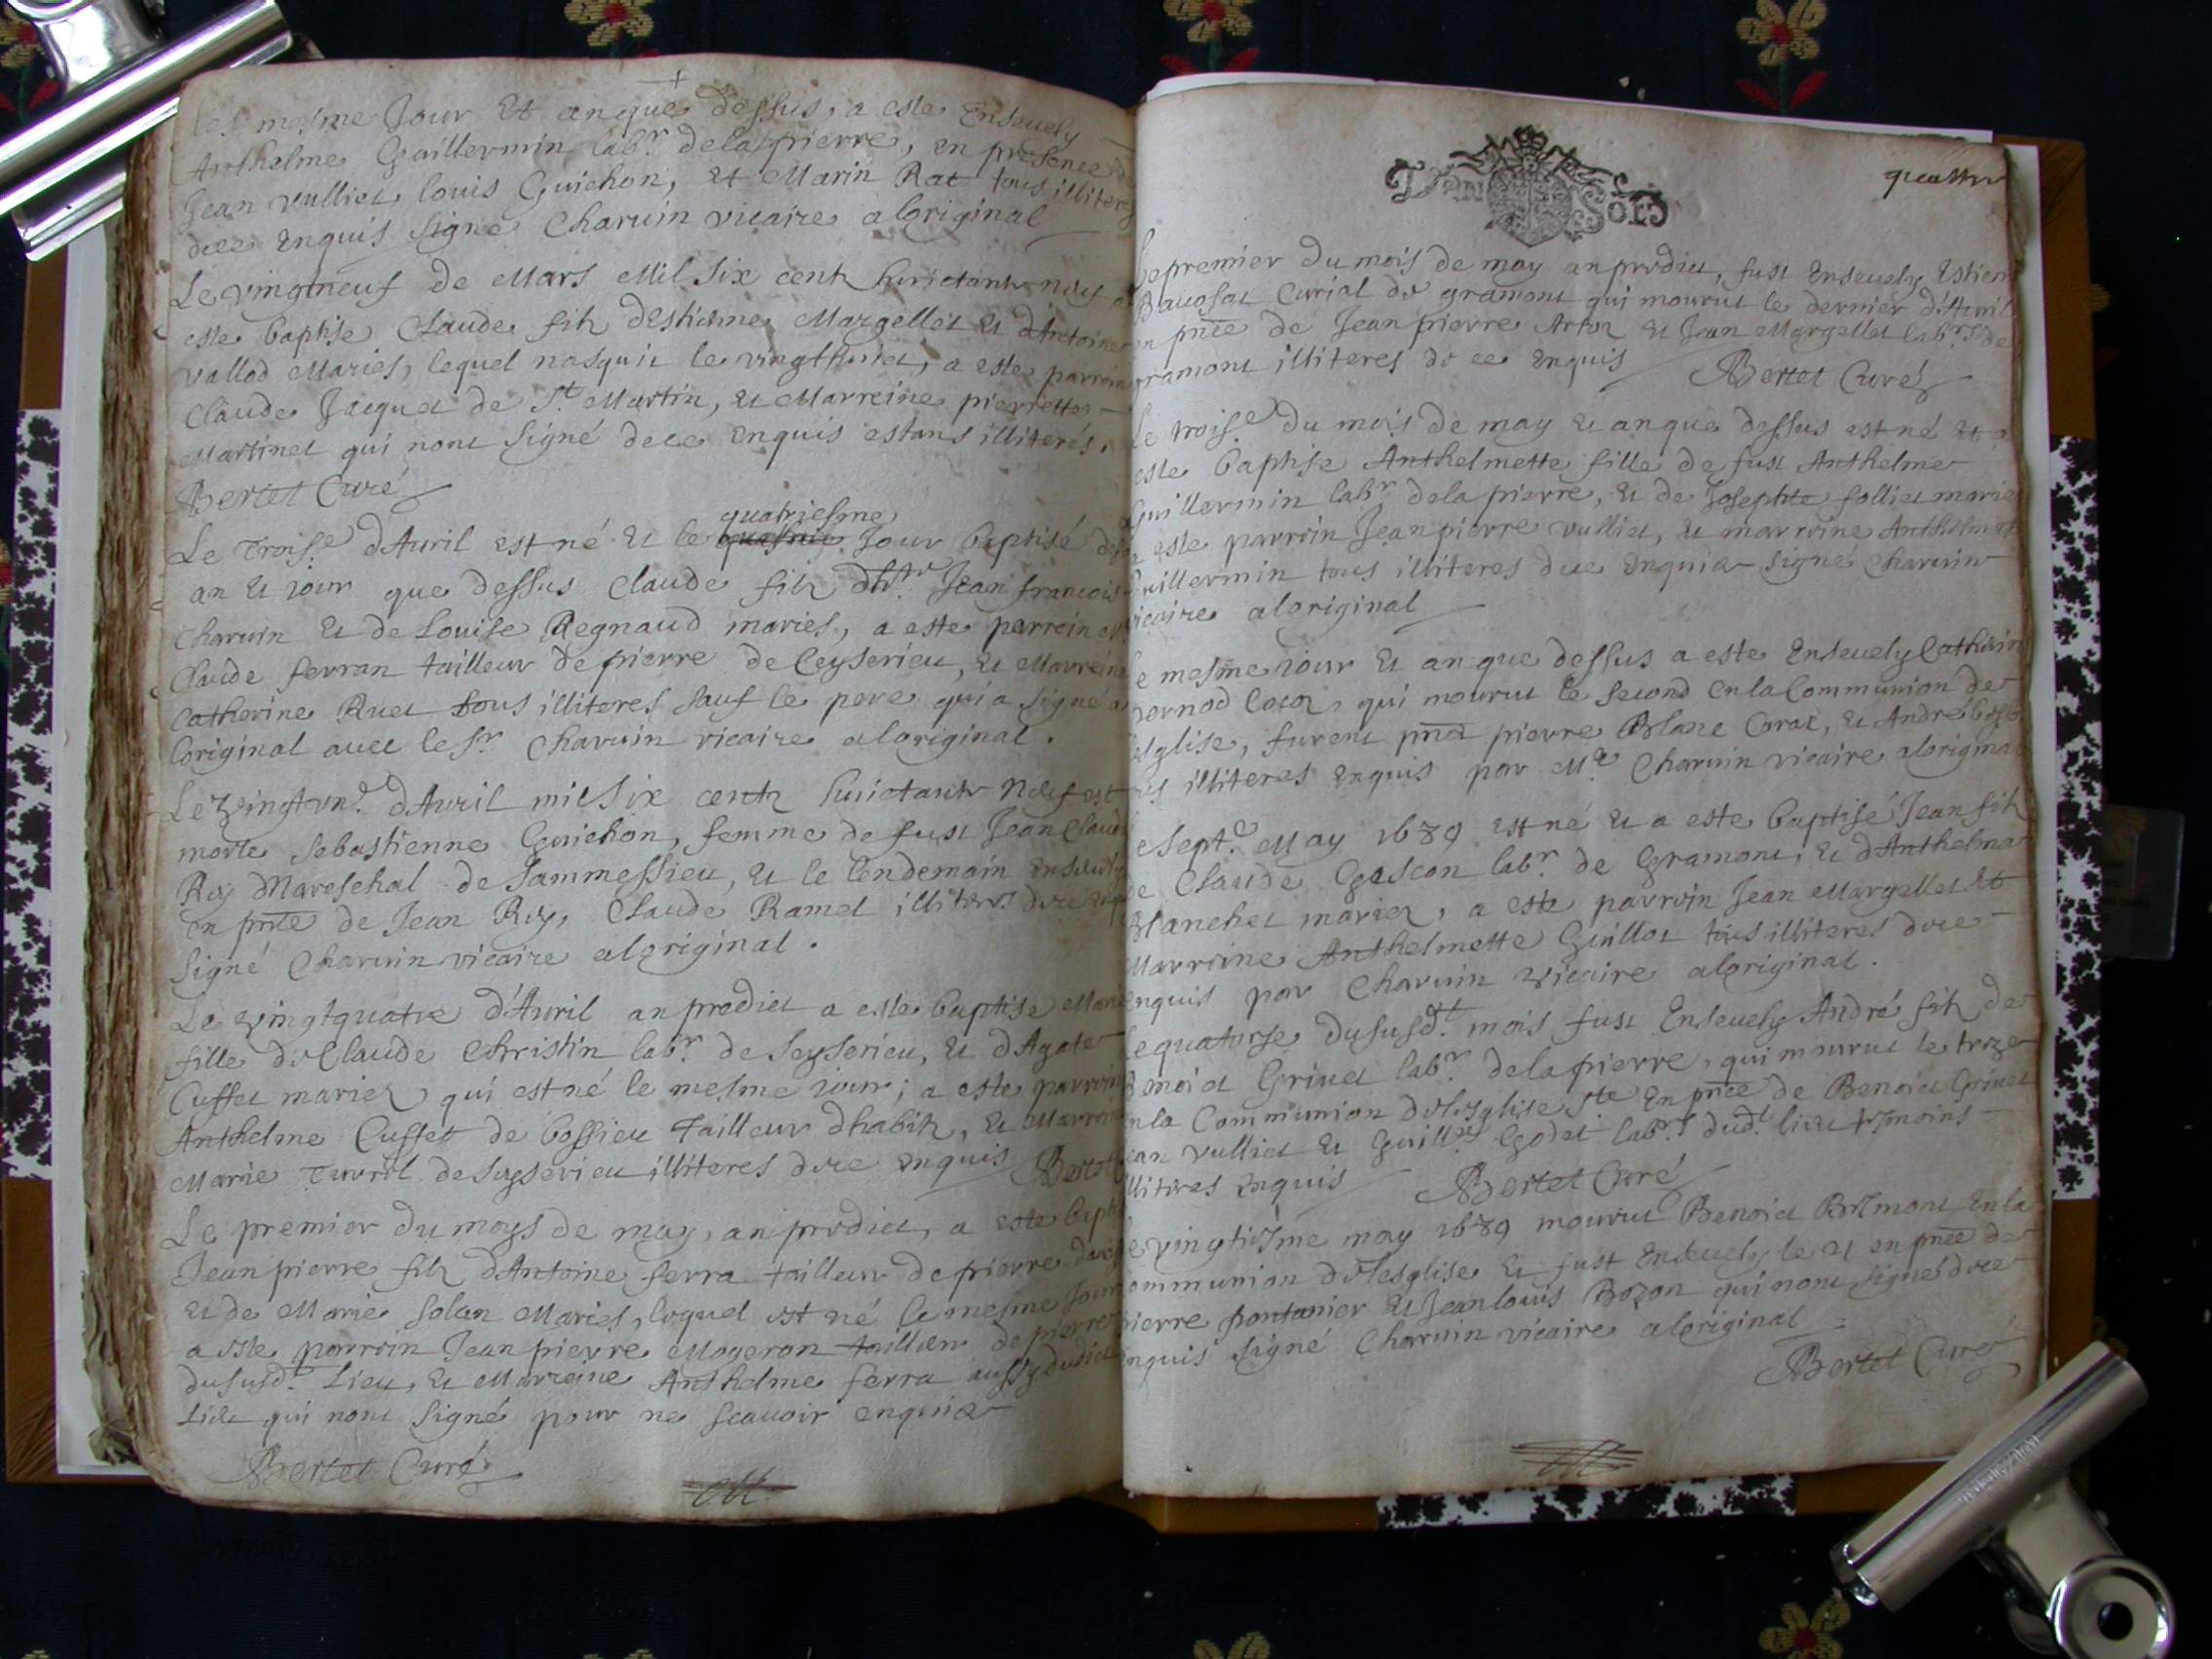 Les mesme Jour et an que dessus, a este Enseuely
Anthelme Guillermin labr. de la pierre, en presence de
Jean vulliet, louis Guichon, et Marin Rat tous illiteres
dece Enquis signe Charuin vicaire a loriginal
Le vingtneuf de Mars Mil six centz huictante neuf a
este baptise Claude filz destienne Margellet et dAntoine
vallod Maries, lequel nasquit le vingthuict, a este parrein
Claude Jacquet de St. Martin, et Marreine pierrette
Martinet qui nont signé dece Enquis estans illiterés.
Bertet Curé
quatriesme
Le Troise. dAuril est né et le Jour baptisé
an et iour que dessus Claude filz Jean francois
Charuin et de Louise Regnaud maries, a este parrein
Claude ferran tailleur de pierre de Ceyserieu, et Marreine
Catherine Ruet tous illiteres sauf le pere qui a signé a
loriginal auec le Sr. Charuin vicaire a loriginal.
Le dAuril mil six centz huictante neuf est
morte Sebastienne Guichon, femme de fust Jean Claude
Roy Mareschal de Jammessieu, et le lendemain enseuely
En pnce de Jean Roy, Claude Ramel dece
Signé Charuin vicaire a loriginal.
Le vingtquatre d'Auril an predict a este baptise Marie
fille de Claude Christin labr. de Seyserieu, et dAgate
Cuffet mariez qui est né le mesme iour; a este parrein
Anthelme Cuffet de bossieu Tailleur dhabitz, et Marreine
Marie de Seyserieu illiteres dece enquis Bertet
Le premier du moys de may, an predict, a este bapt
Jean pierre filz dAntoine ferra tailleur de pierre
et de Marie solan Maries, lequel est né le mesme Jour
a este parrein Jean pierre Mogeron tailleur de pierre
du susdt. Lieu, et Marreine Anthelme ferra aussy dudict
Lieu qui nont signé pour ne scauoir enquis
Bertet Curé
quattre
Le premier du mois de may an predict, fust Enseuely Estien
Curial de gramont qui mourut le dernier d'Auril
en pnce de Jean pierre et Jean Margellet labrs. de
gramont illiteres de ce enquis Bertet Curé
Le troise. du mois de may et an que dessus est né et a
este baptise Anthelmette fille de fust Anthelme
Guillermin labr. de la pierre, et de Josephte folliet maries
a este parrein Jean pierre vulliet, et marreine Anthelmette
Guillermin tous illiteres dece enquis signé charuin
vicaire a loriginal
Le mesme iour et an que dessus a este Enseuely Catherin
qui mourut le second en la Communion de
lesglise, furent pierre Blanc et André
illiteres enquis par Me Charuin vicaire a loriginal
Le Septe. May 1689 est né et a este baptisé Jean filz
de Claude Gascon labr. de Gramont, et dAnthelma
Blanchet mariez, a este parrein Jean Margellet et
Marreine Anthelmette Guillot tous illiteres dece
enquis par Charuin vicaire a loriginal.
Le quatorse du susdt. mois fust Enseuely André filz de
Benoict Griuet labr. de la pierre, qui mourut le treze
en la Communion de lesglise ste En pnce de Benoict Griuet
Jean vulliet et Guille. Godet labrs. dudt. lieu tesmoins
illiteres enquis Bertet Curé
Le vingtiesme may 1689 mourut Benoict En la
Communion de lesglise et fust Enseuely le 21 en pnce de
pierre pontanier et Jean louis Bozon qui nont signé dece
enquis signé Charuin vicaire a loriginal
Bertet Curé